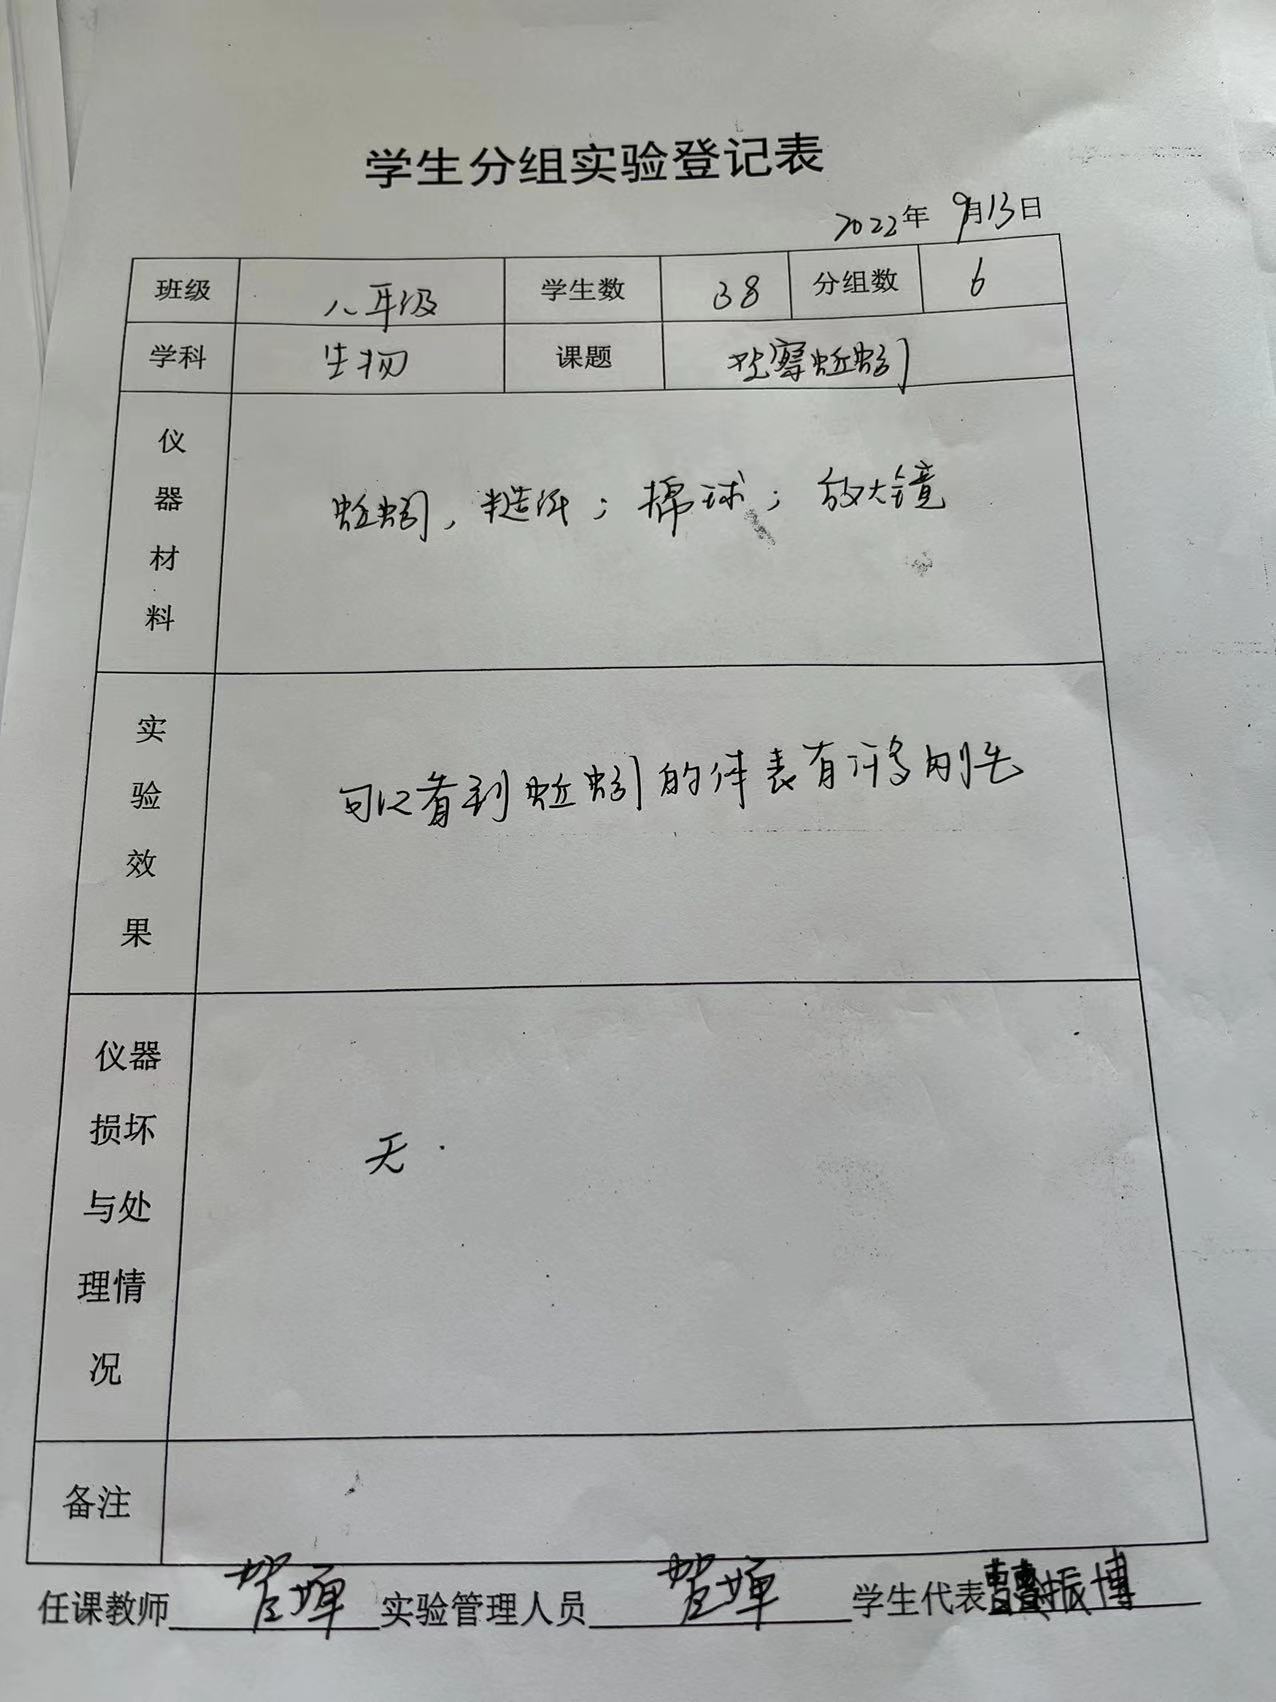 学生分组实验登记表
2022年 9月13日
班级 八年级 学生数 38 分组数 6
学科 生物 课题 观察蚯蚓
仪器材料 蚯蚓，糙纸；棉球；放大镜
实验效果 可以看到蚯蚓的体表有许多刚毛
仪器损坏与处理情况 无.
备注
任课教师 实验管理人员 学生代表 振博